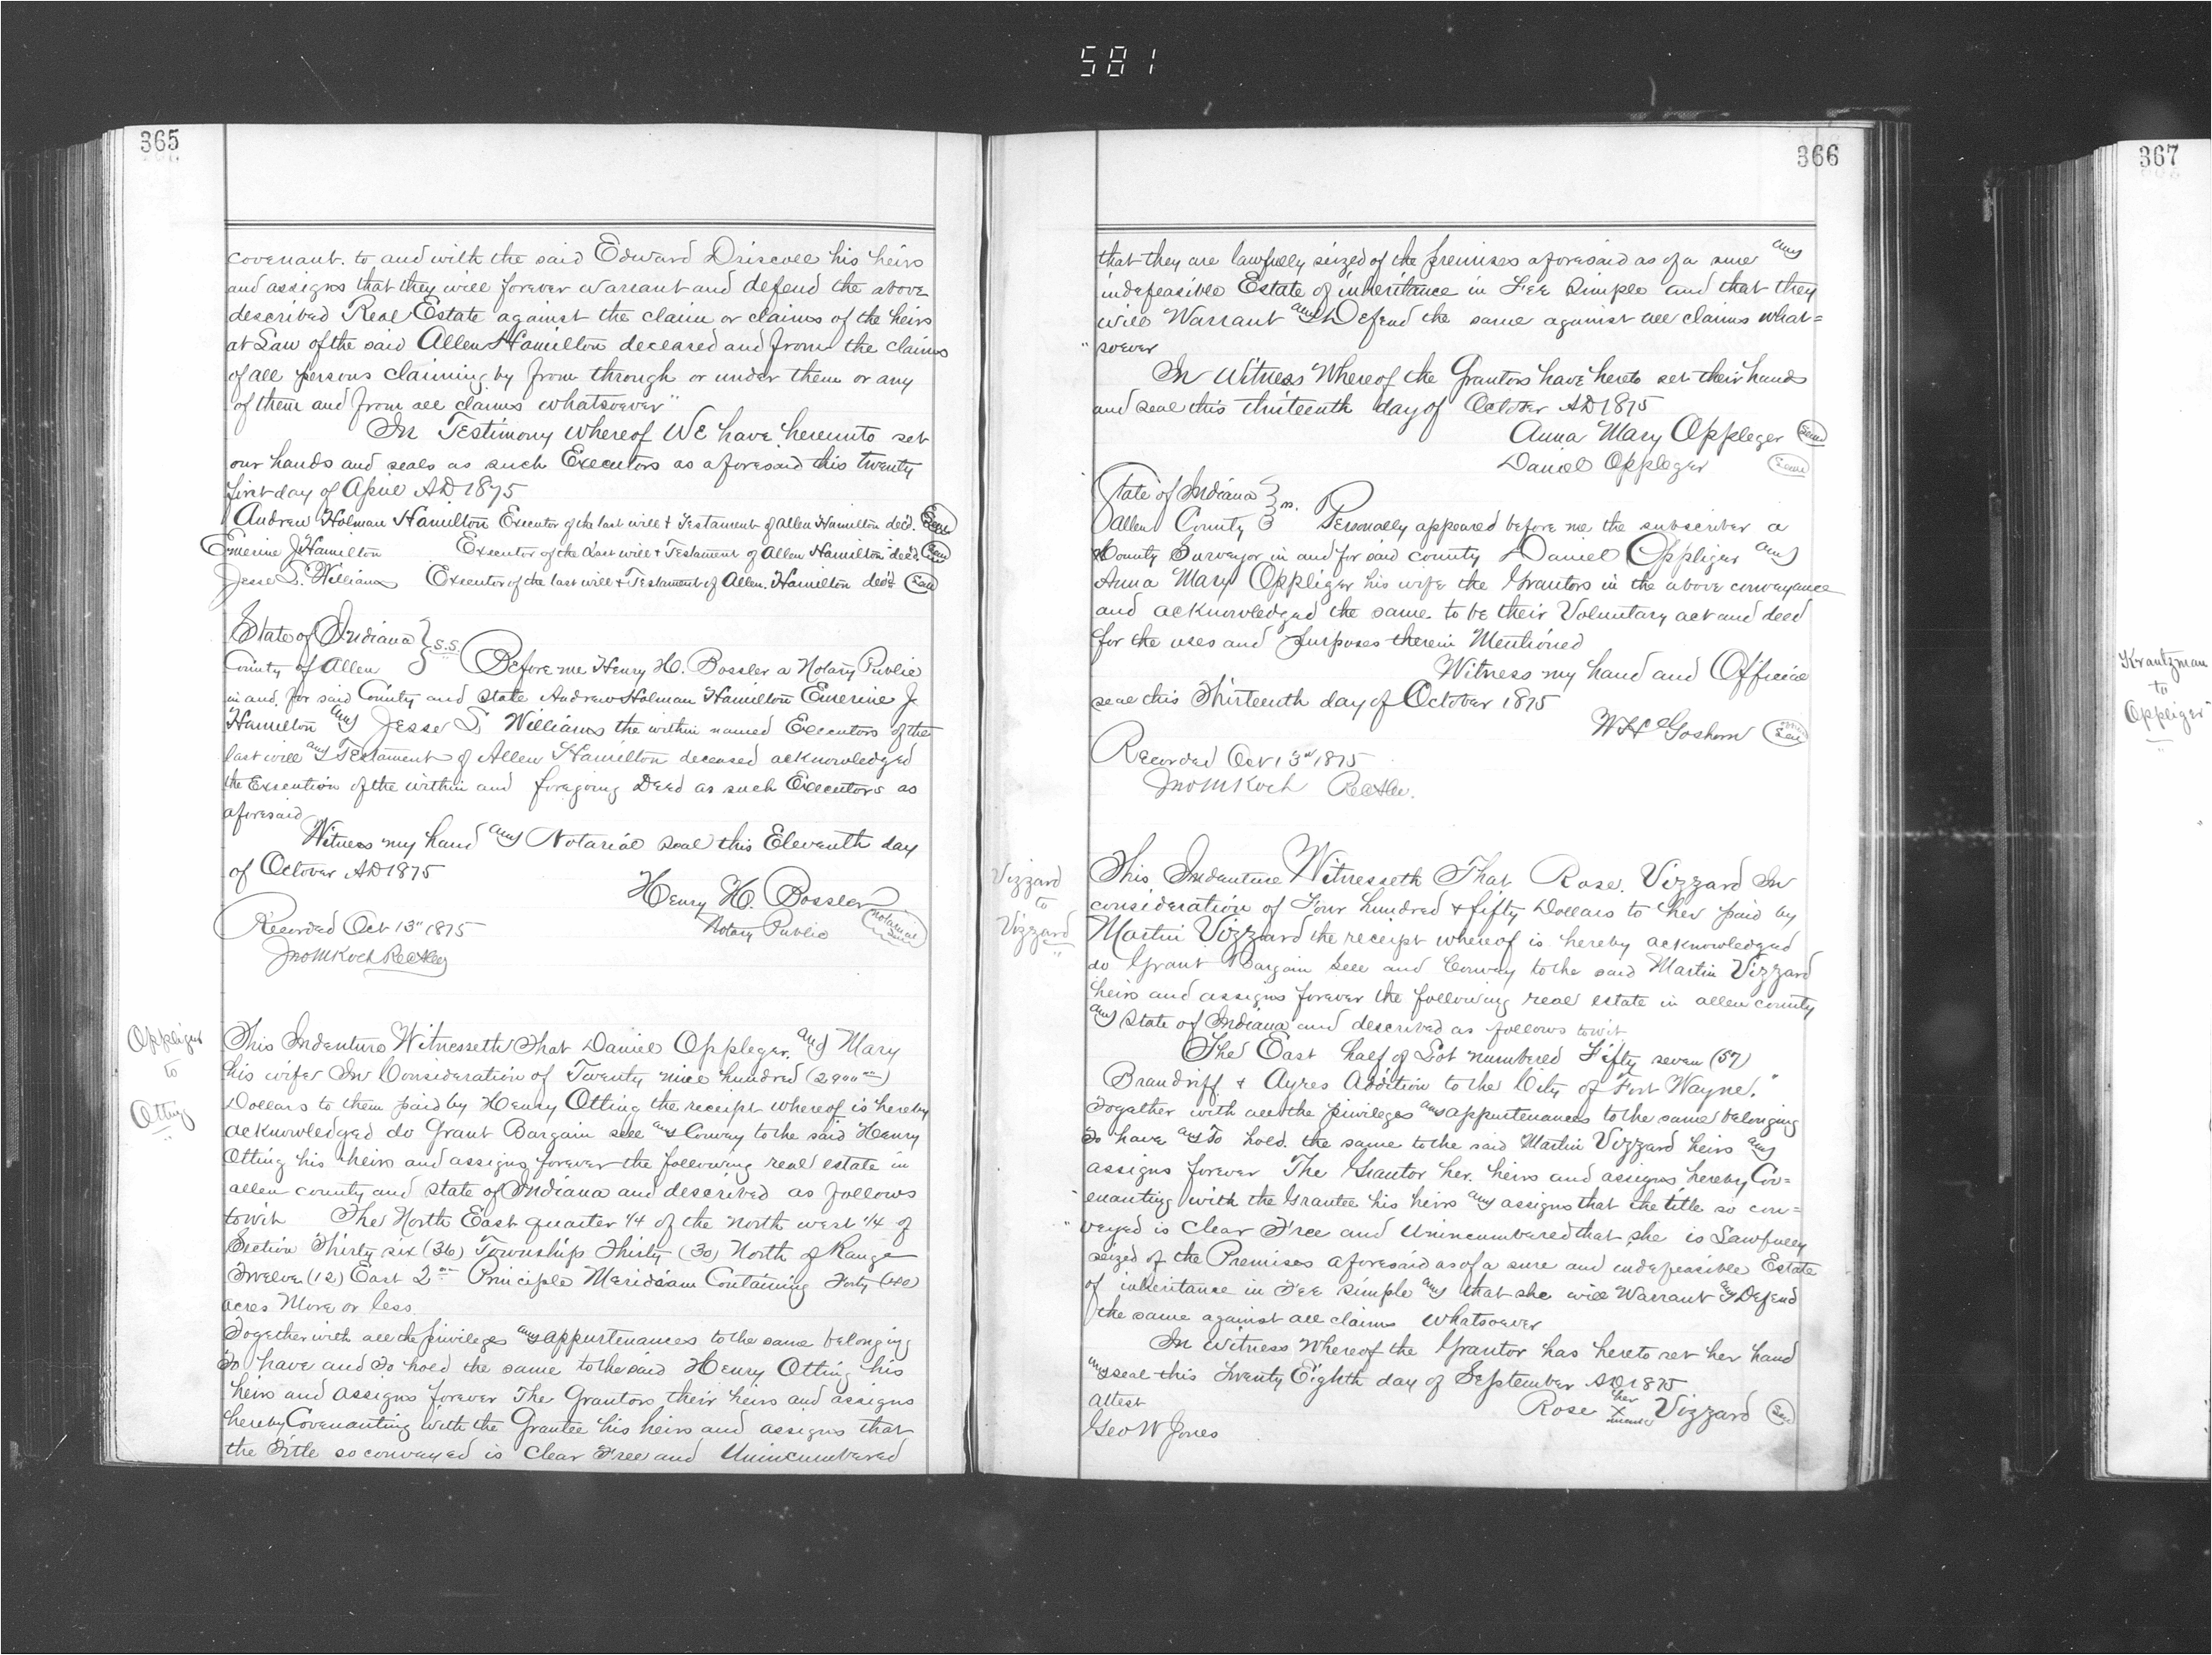 581
365
covenant. to and with the said Edward Driscoll his heirs
and assigns that they will forever warrant and defend the above
described Real Estate against the claim or claims of the heirs
at Law of the said Allen Hamilton deceased and from the claims
of all persons claiming by from through or under them or any
of them and from all claims whatsoever"
In Testimony whereof We have hereunto set
our hands and seals as such Executors as aforesaid this twenty
first day of April AD 1875
Andrew Holman Hamilton Executor of the last will & Testament of Allen Hamilton dec'd. Seal
Emerine J Hamilton Executor of the Last will & Testament of Allen Hamilton dec'd. Seal
Jesse L. Williams Executor of the last will & Testament of Allen. Hamilton dec'd Seal
State of Indiana } S.S.
County of Allen } Before me Henry H. Bossler a Notary Public
in and for said County and State Andrew Holman Hamilton Emerine J
Hamilton and Jesse L Williams the within named Executors of the
last will and Testament of Allen Hamilton deceased acknowledged
the Execution of the within and foregoing Deed as such Executors as
aforesaid
Witness my hand and Notarial seal this Eleventh day
of October AD 1875
Henry H. Bossler
Notary Public Notarial Seal
Recorded Oct 13" 1875
Jno M Koch Rec
Oppliger
to
Otting
This Indenture Witnesseth That Daniel Oppleger. and Mary
his wife In Consideration of Twenty nine hundred (2900 00)
Dollars to them paid by Henry Otting the receipt whereof is hereby
acknowledged do Grant Bargain sell and Convey to the said Henry
Otting his heirs and assigns forever the following real estate in
allen county and State of Indiana and described as follows
towit The North East quarter 1/4 of the north west 1/4 of
Section Thirty six (36) Township Thirty (30) North of Range
Twelve (12) East 2nd Principle Meridiam Containing Forty (40)
acres More or less.
Together with all the privileges and appurtenances to the same belonging
To have and To hold the same to the said Henry Otting his
heirs and assigns forever The Grantors their heirs and assigns
hereby Covenanting with the Grantee his heirs and assigns that
the Title so conveyed is Clear Free and Unincumbered
366
that they are lawfully seized of the premises aforesaid as of a sure and
indefeasible Estate of inheritance in FEE Simple and that they
will Warrant and Defend the same against all claims what=
" soever
In Witness Whereof the Grantors have hereto set their hands
and seal this thirteenth day of October AD 1875
Anna Mary Oppleger Seal
Daniel Oppleger Seal
State of Indiana } ss.
Allen County } Personally appeared before me the subscriber a
County Surveyor in and for said county Daniel Oppliger and
Anna Mary Oppliger his wife the Grantors in the above conveyance
and acknowledged the same. to be their Voluntary act and deed
for the uses and purposes therein Mentioned
Witness my hand and Official
seal this Thirteenth day of October 1875
W H Goshorn Seal
Recorded Oct 13" 1875
Jno M Koch
Vizzard
to
Vizzard
This Indenture Witnesseth That Rose. Vizzard In
consideration of Four hundred & fifty Dollars to her paid by
Martin Vizzard the receipt whereof is hereby acknowledged
do Grant Bargain Sell and Convey to the said Martin Vizzard
heirs and assigns forever the following real estate in allen county
and State of Indiana and described as follows towit
The East half of Lot numbered Fifty seven (57)
Brandriff & Ayres Addition to the City of Fort Wayne."
Together with all the privileges and appurtenances to the same belonging
To have and To hold. the same to the said Martin Vizzard heirs and
assigns forever The Grantor her. heirs and assigns hereby Cov=
enanting with the Grantee his heirs and assigns that the title so con=
" veyed is Clear Free and Unincumbered that she is Lawfully
seized of the Premises aforesaid as of a sure and indefeasible Estate
of inheritance in FEE Simple and that she will Warrant and Defend
the same against all claims Whatsoever
In Witness Whereof the Grantor has hereto set her hand
and seal this Twenty Eighth day of September AD 1875
Attest Rose her X mark Vizzard Seal
Geo W Jones
367
Krantzman
to
Oppliger